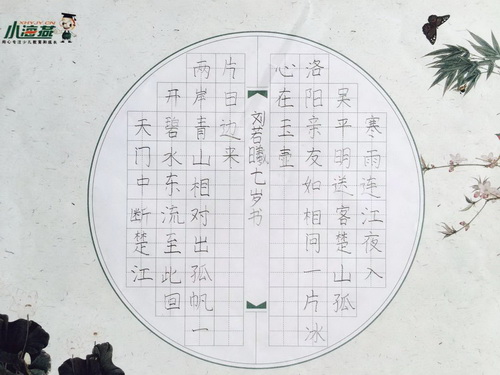 小海燕
寒雨连江夜入
吴平明送客楚山孤
洛阳亲友如相问一片冰
心在玉壶
刘若曦七岁书
天门中断楚江
开碧水东流至此回
两岸青山相对出孤帆一
片日边来